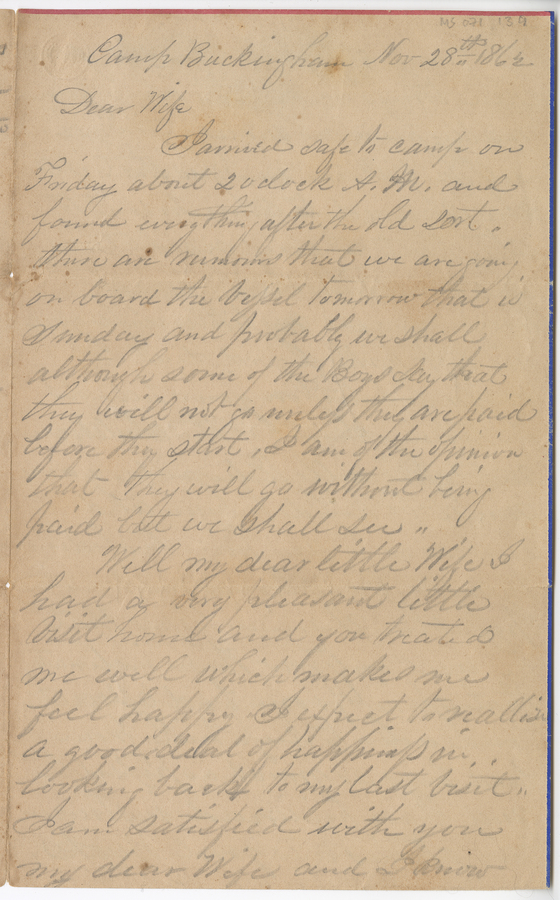 MS 071 137
Camp Buckingham Nov 28th 1862
Dear Wife
I arrived safe to camp on
Friday about 2 oclock A. M. and
found everything after the old sort.
there are rumors that we are going
on board the Vessel tomorrow that is
Sunday and probably we shall
although some of the Boys say that
they will not go unless they are paid
before they start. I am of the opinion
that they will go without being
paid but we shall see "
Well my dear little Wife I
had a very pleasant little
visit home and you treated
me well which makes me
feel happy I expect to reallise
a good deal of happiness in
looking back to my last visit "
I am satisfied with you
my dear Wife and I know